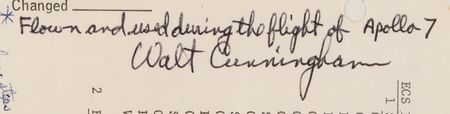 Changed
* Flown and used during the flight of Apollo 7
Walt Cunningham
ECS
2
1